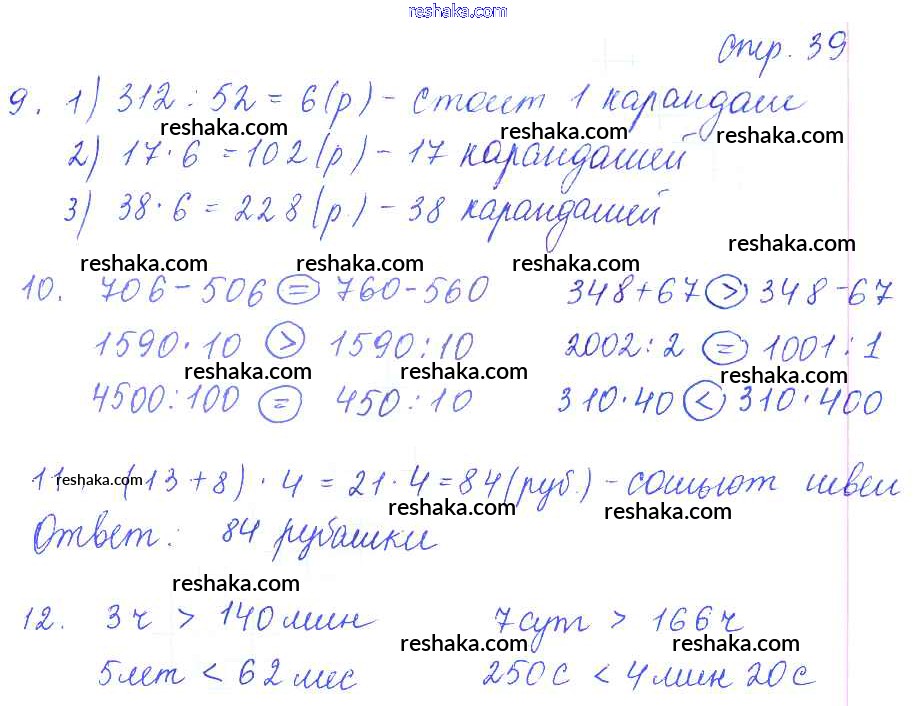 reshaka.com
стр. 39
9. 1) 312 : 52 = 6 (р) - стоит 1 карандаш
reshaka.com reshaka.com reshaka.com
2) 17 · 6 = 102 (р) - 17 карандашей
3) 38 · 6 = 228 (р.) - 38 карандашей
reshaka.com
reshaka.com reshaka.com reshaka.com
10. 706 - 506 = 760 - 560 348 + 67 > 348 - 67
1590 · 10 > 1590 : 10 2002 : 2 = 1001 : 1
reshaka.com reshaka.com reshaka.com
4500 : 100 = 450 : 10 310 · 40 < 310 · 400
11. reshaka.com (13 + 8) · 4 = 21 · 4 = 84 (руб.) - сошьют швеи
reshaka.com reshaka.com
Ответ: 84 рубашки
reshaka.com
12. 3 ч > 140 мин 7 сут > 166 ч
reshaka.com reshaka.com
5 лет < 62 мес 250 с < 4 мин 20 с